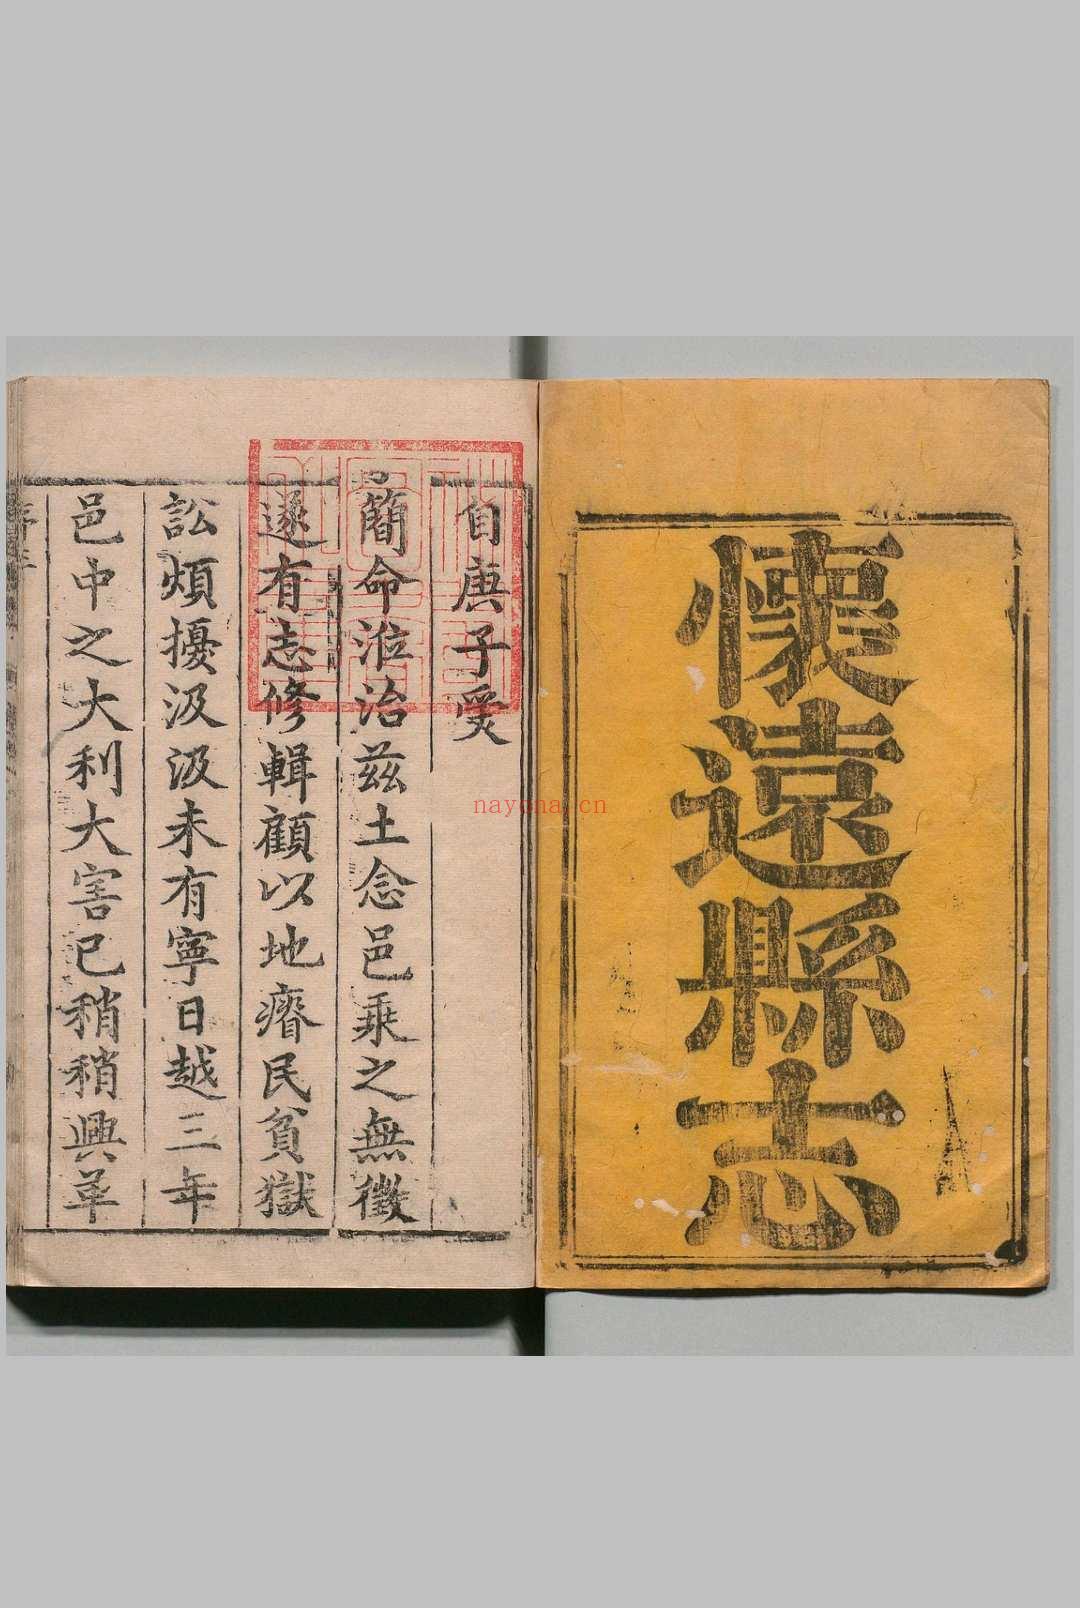 懷遠縣志
自庚子受
簡命涖治茲土念邑乘之無徵
遂有志修輯顧以地瘠民貧獄
訟煩擾汲汲未有寧日越三年
邑中之大利大害已稍稍興革
nayona.cn